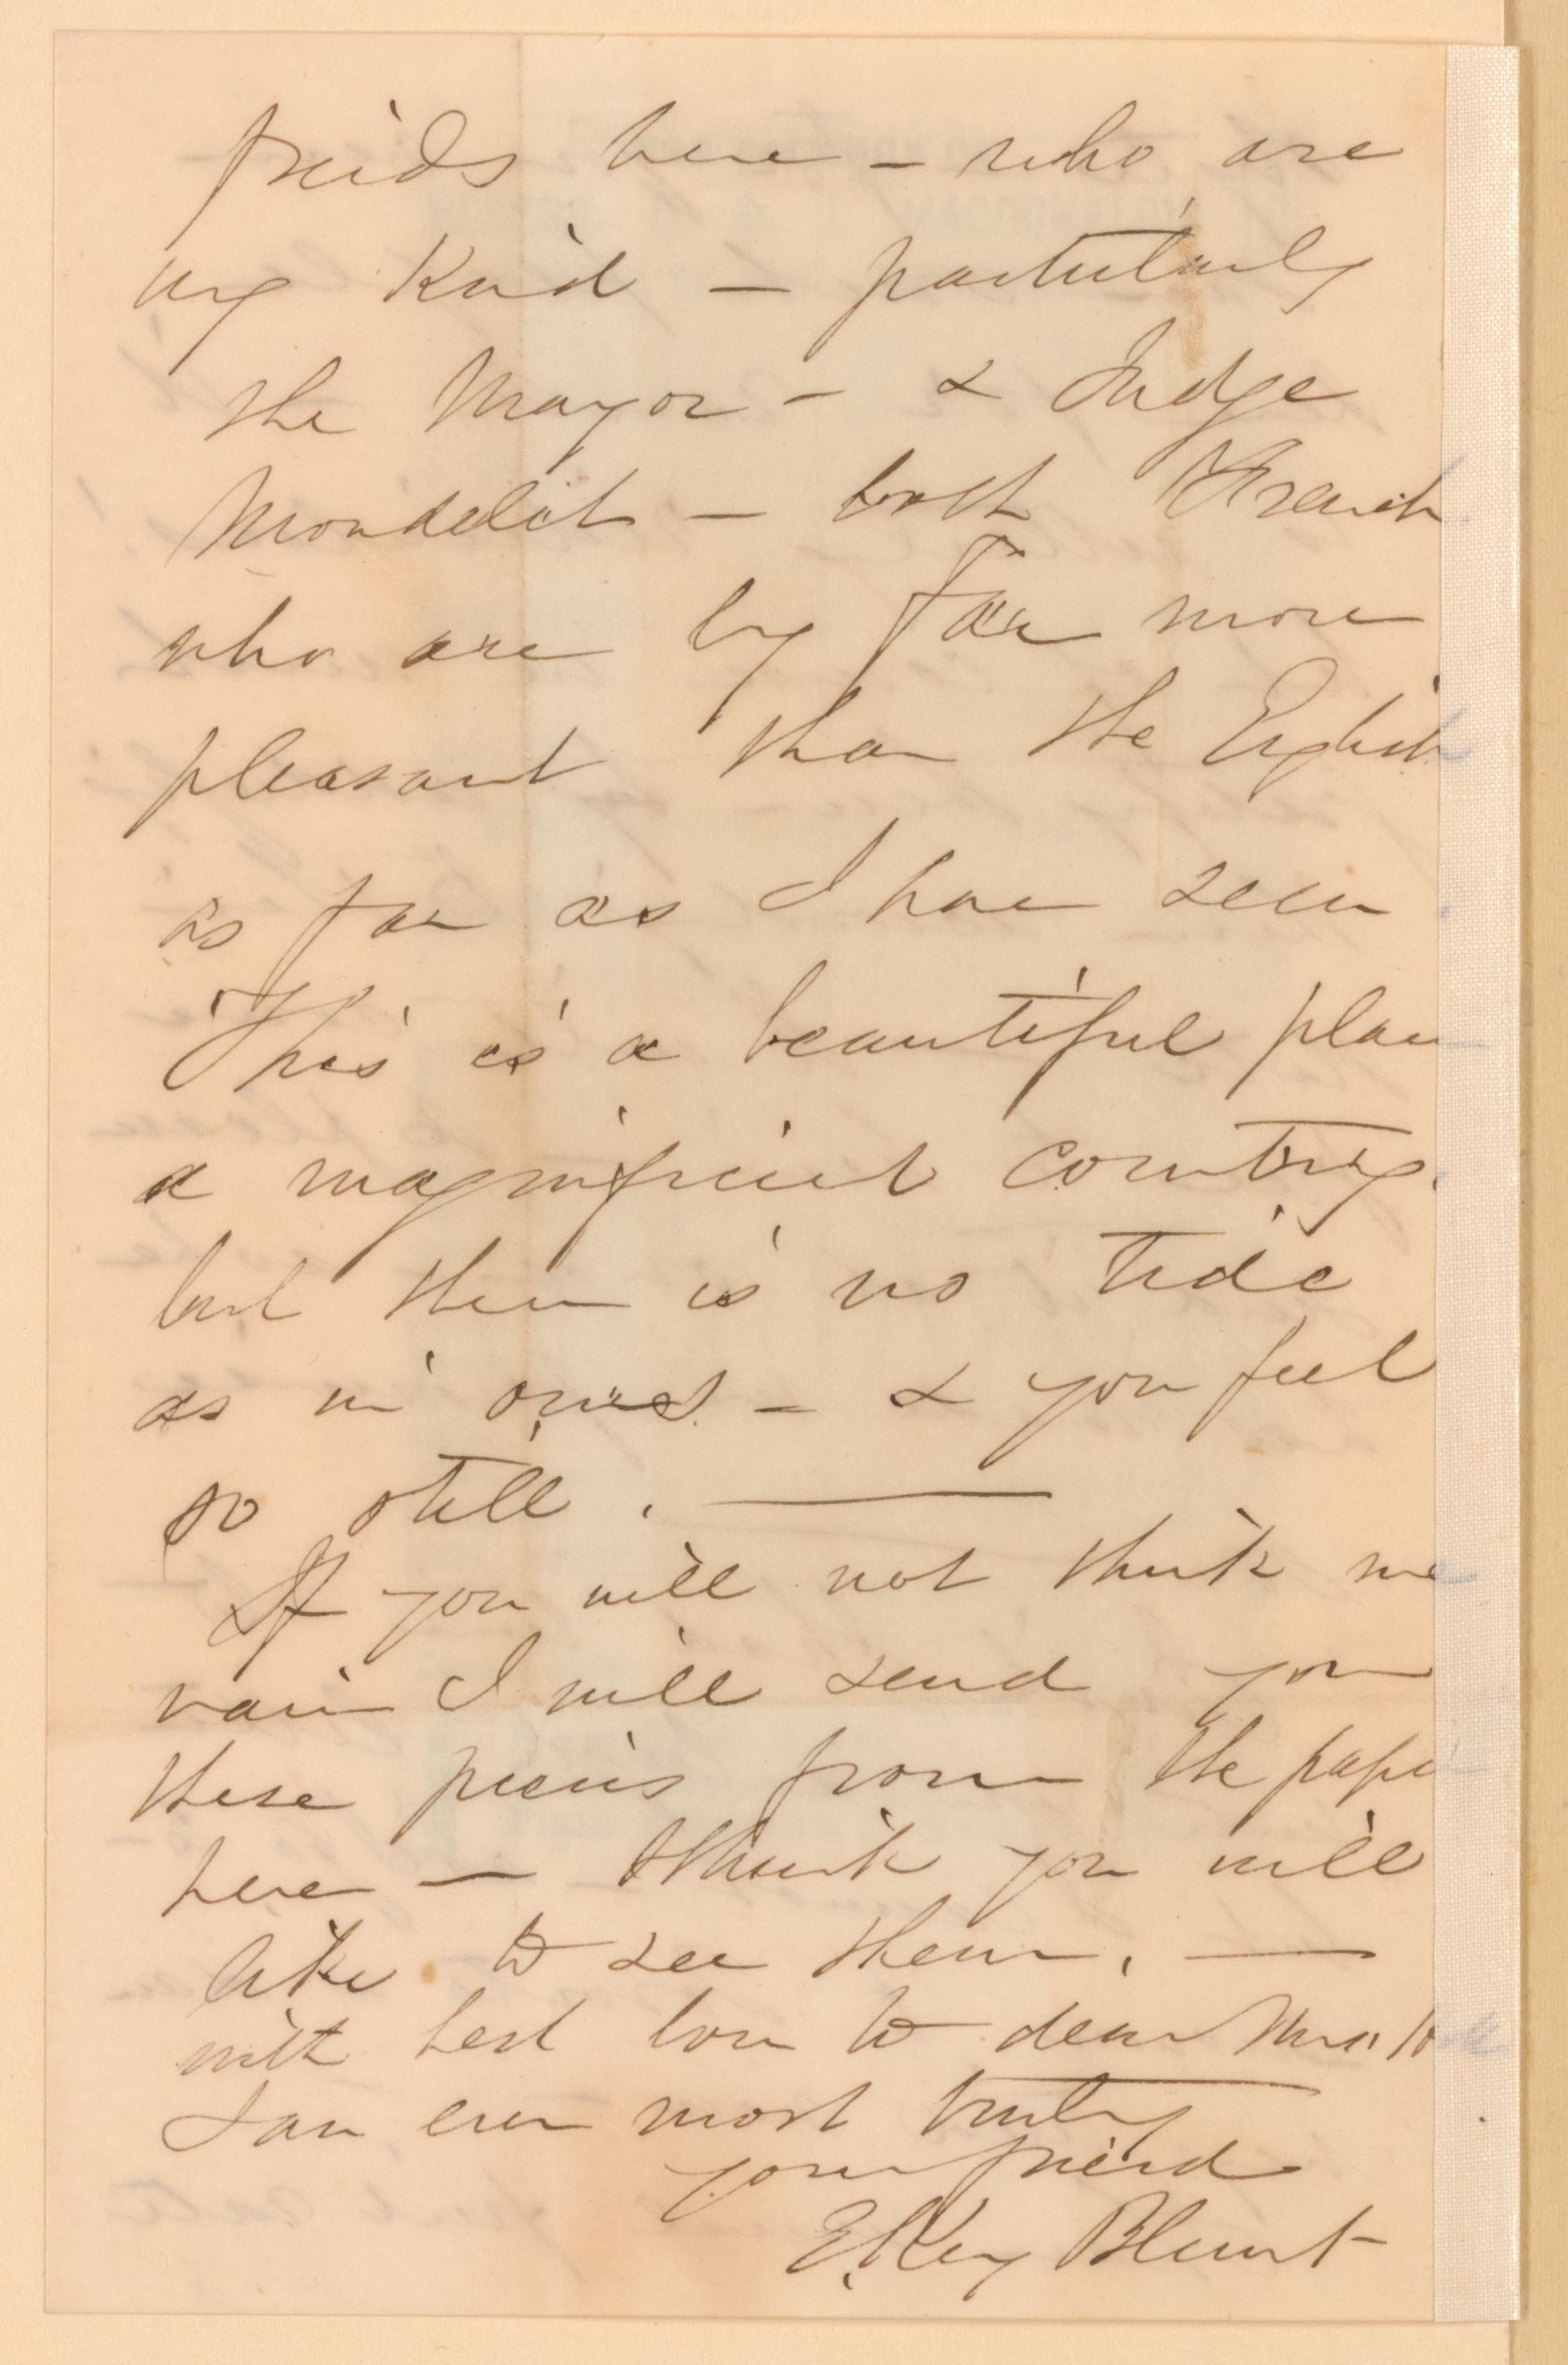 friends here – who are
very Kind – particularly
the Mayor – & Judge
Mondelet – both French
who are by far more
pleasant than the English
as far as I have seen
This is a beautiful place
a magnificient country.
but there is no tide
as in ours – & you feel
so still. —
If you will not think me
vain I will send you
these pieces from the pape
here — think you will
like to see them. —
with best love to dear Mrs.
I am ever most truly
your friend
E Key Blunt